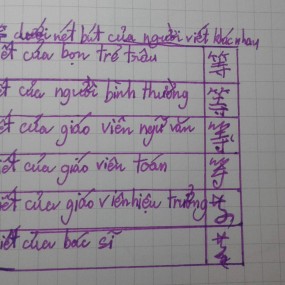 dưới nét bút của người viết khác nhau
ết của bọn trẻ trâu 等
ết của người bình thường 等
ết của giáo viên ngữ văn 等
ết của giáo viên toán 等
iết của giáo viên hiệu trưởng
iết của bác sĩ